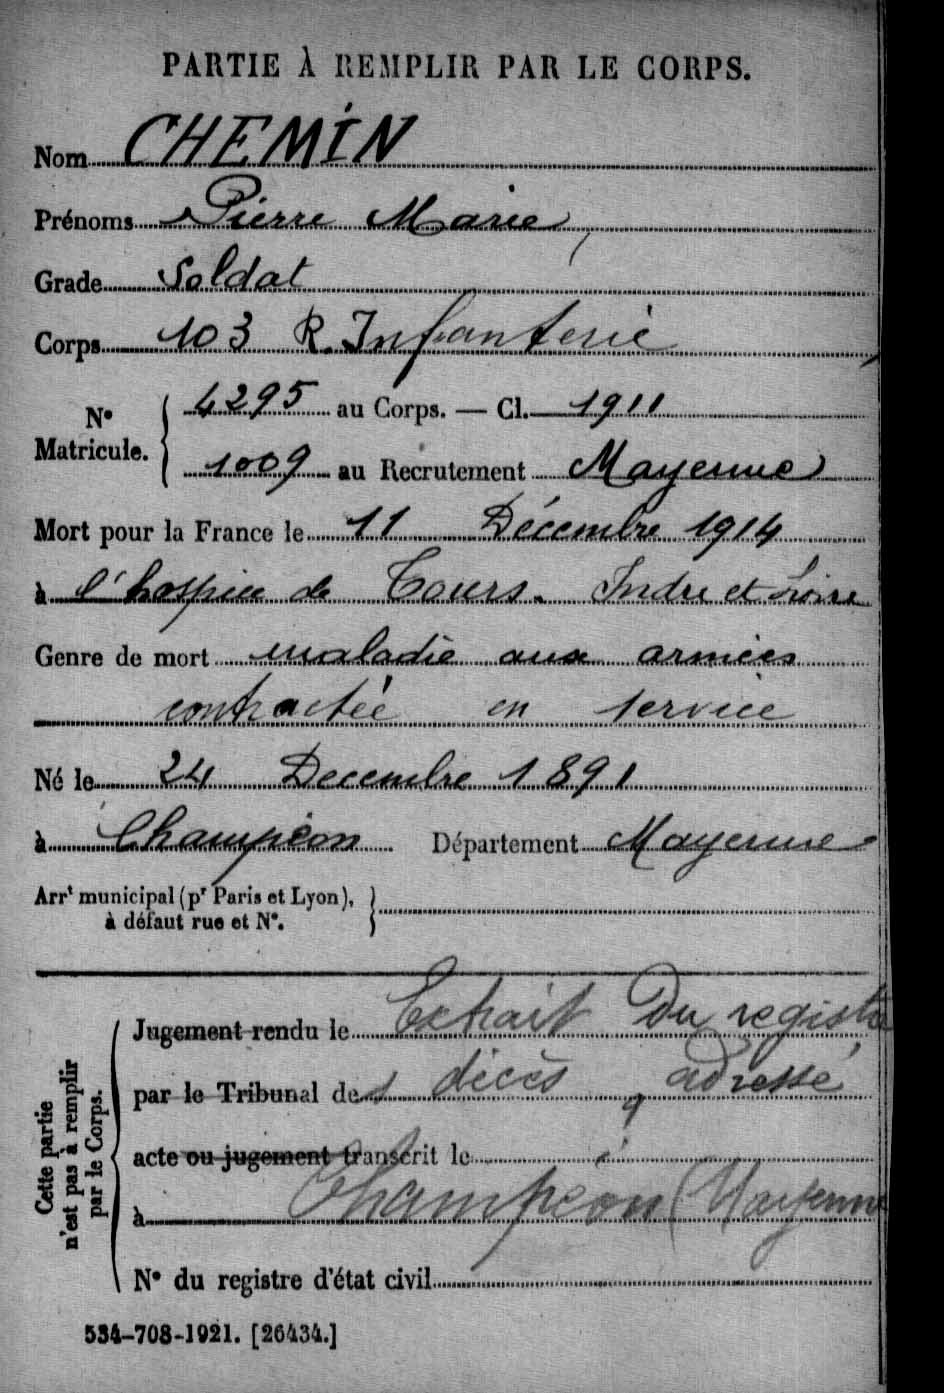 PARTIE À REMPLIR PAR LE CORPS.
Nom CHEMIN
Prénoms Pierre Marie
Grade Soldat
Corps 103 R. Infanterie
N° Matricule. 4295 au Corps. — Cl. 1911
1009 au Recrutement Mayenne
Mort pour la France le 11 Décembre 1914
à l'hospice de Tours. Indre et Loire
Genre de mort maladie aux armées
contractée en service
Né le 24 Decembre 1891
à Champéon Département Mayenne
Arrt municipal (pr Paris et Lyon),
à défaut rue et N°.
Cette partie
n'est pas à remplir
par le Corps.
Jugement rendu le Extrait du registre
par le Tribunal des décès adressé
acte ou jugement transcrit le à
à Champéon (Mayenne
N° du registre d'état civil
534-708-1921. [26434.]